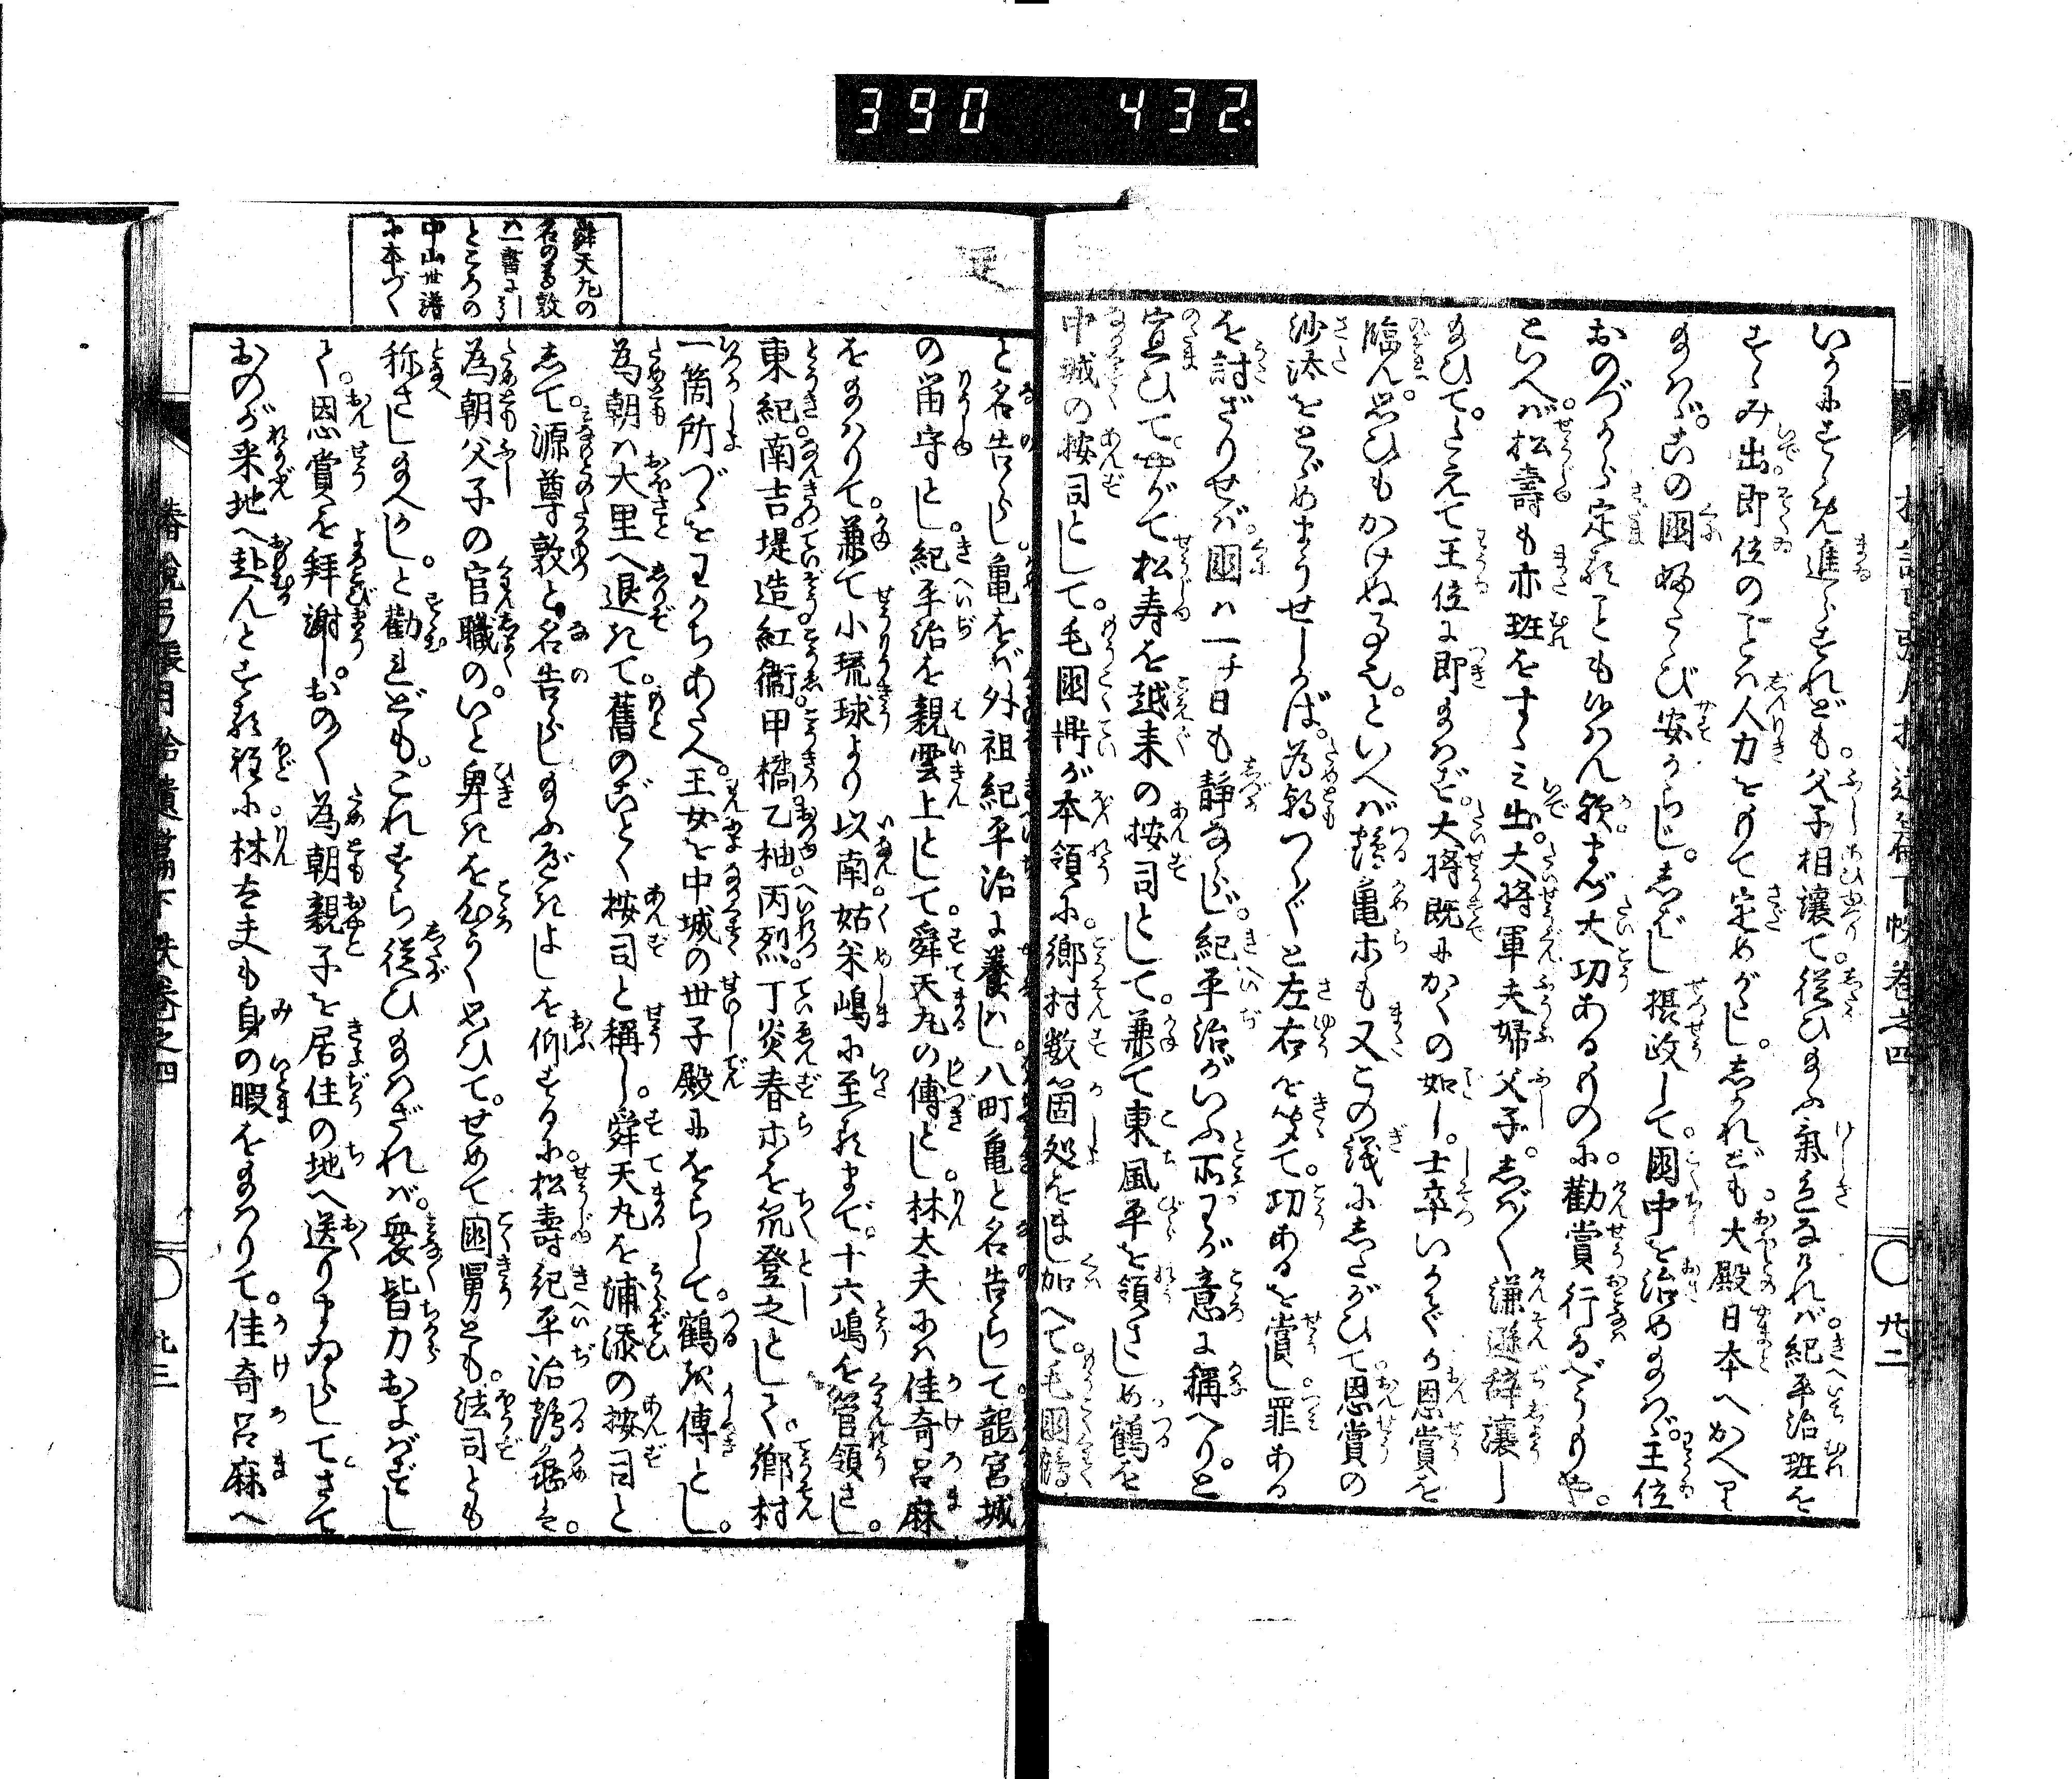 390 432.
いかにすゝめ進らすれども。父子相讓て。從ひ給ふ氣色なければ。紀平治班を
すゝみ出。即位のことは人力をもて定めがたし。しかれども大殿日本へかへり
給はゞ。この國ふたゝび安からじ。しばし摂政して。國中を治め給はゞ。王位
おのづから定ることも候はん歟。まづ大功あるものに。勸賞行るべうもや。
といへば。松壽も亦班をすゝみ出。大將軍夫婦父子。しば〳〵謙遜辞讓し
給ひて。たえて王位に即給はず。大將既にかくの如し。士卒いかでか恩賞を
臨ん。思ひもかけぬ事也。といへば。鶴亀ホも又この議にしたがひて。恩賞の
沙汰をとゞめまうせしかば。為朝つく〴〵と左右を笑て。功あるを賞し。罪ある
を討ざりせば。國は一チ日も静ならじ。紀平治がいふ所わが意に稱へり。と
宣ひて。やがて松寿を越来の按司として。兼て東風平を領さしめ。鶴を
中城の按司として。毛國鼎が本領に。郷村数箇処をまし加へて。毛國鶴
と名告らし。亀をば外祖紀平治に養はし。八町亀と名告らして。龍宮城
の留守とし。紀平治を親雲上として。舜天丸の傅とし。林太夫には佳奇呂麻
を給はりて。兼て小琉球より以南。姑米嶋に至るまで。十六嶋を管領さし。
東紀。南吉。堤造。紅衞。甲橘。乙柚。丙烈。丁炎。春ホを筑登之として。郷村
一箇所づゝをわかちあたへ。王女を中城の世子殿にをらして。鶴を傅とし。
為朝は大里へ退きて。舊のごとく按司と稱し。舜天丸を浦添の按司と
して。源尊敦と名告らし給ふべきよしを仰するに。松壽紀平治鶴亀ホ。
為朝父子の官職の。いと卑きを心うく思ひて。せめて國舅とも。法司とも
称さし給へかし。と勸れども。これすら從ひ給はざれば。衆皆力およばずし
て。恩賞を拜謝し。おの〳〵為朝親子を居住の地へ送りまゐらして。さて
おのが釆地へ赴んとする程に。林太夫も身の暇を給はりて。佳奇呂麻へ
舜天丸の
名の尊敦
は一書に引
ところの
中山世譜
に本づく
椿説弓張月拾遺篇下帙巻之四
廿二
廿三